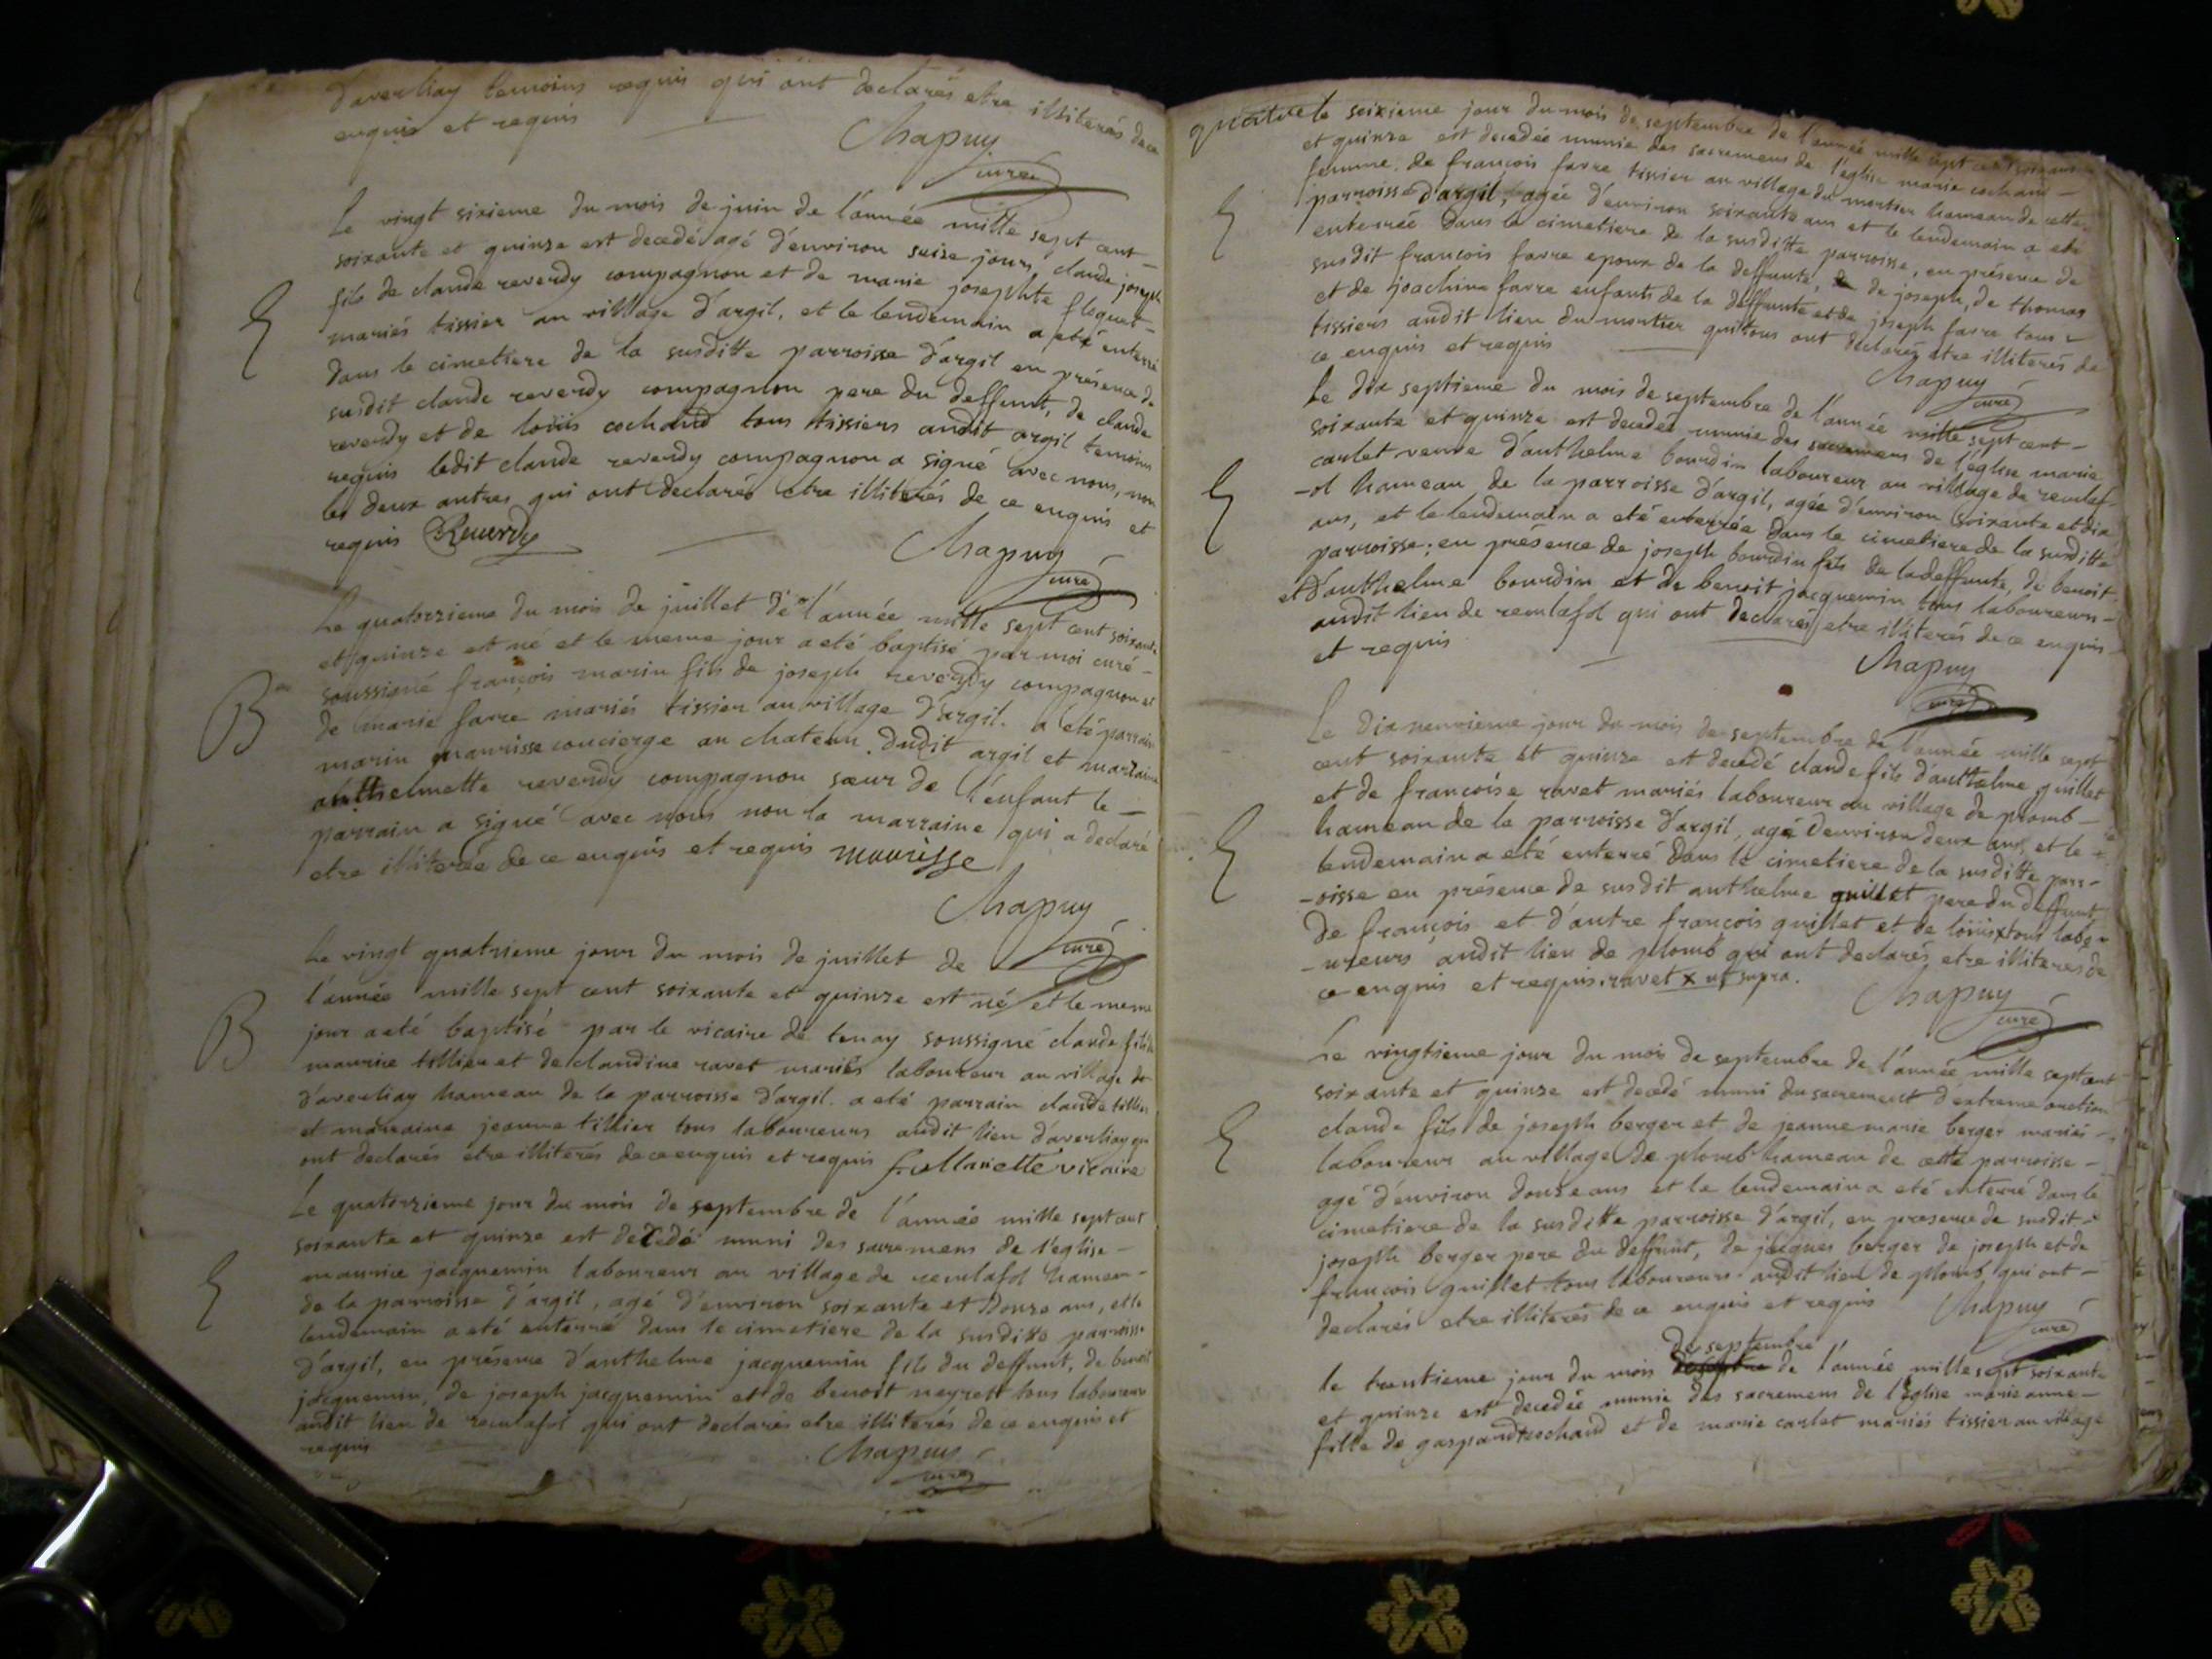 d'averliay temoins requis qui ont declarés etre illiterés de ce
enquis et requis
Chapuy
curé
Le vingt sixieme du mois de juin de l'année mille sept cent -
soixante et quinze est decedé agé d'environ seize jours, claude joseph
fils de claude reverdy compagnon et de marie josephte floquet -
mariés tissier au village d'argil, et le lendemain a eté enterré
E
dans le cimetiere de la susditte parroisse d'argil en présence de
susdit claude reverdy compagnon pere du deffunt, de claude
reverdy et de loüis cochand tous tissiers audit argil temoins
requis ledit claude reverdy compagnon a signé avec nous, non
les deux autres qui ont declarés etre illiterés de ce enquis et
requis Reverdy
Chapuy
curé
Le quatorzieme du mois de juillet de l'année mille sept cent soixante
et quinze est né et le meme jour a eté baptisé par moi curé -
soussigné françois marin fils de joseph reverdy compagnon et
B
de marie farre mariés tissier au village d'argil. a eté parrain
marin maurisse concierge au chateau dudit argil et marraine
anthelmette reverdy compagnon sœur de l'enfant le -
parrain a signé avec nous non la marraine qui a declaré
etre illiterée de ce enquis et requis maurisse
Chapuy
curé
Le vingt quatrieme jour du mois de juillet de
l'année mille sept cent soixante et quinze est né et le meme
B
jour a eté baptisé par le vicaire de tenay soussigné claude fils de
maurice tillier et de claudine ravet mariés laboureur au village de
d'averliay hameau de la parroisse d'argil. a eté parrain claude tillier
et marraine jeanne tillier tous laboureurs audit lieu d'averliay qui
ont declarés etre illiterés de ce enquis et requis vicaire
Le quatorzieme jour du mois de septembre de l'année mille sept cent
soixante et quinze est decedé muni des sacremens de l'eglise -
E
maurice jacquemin laboureur au village de remlafol hameau -
de la parroisse d'argil, agé d'environ soixante et douze ans, et le
lendemain a eté enterré dans le cimetiere de la susditte parroisse
d'argil, en présence d'anthelme jacquemin fils du deffunt, de benoit
jacquemin, de joseph jacquemin et de benoit neyret tous laboureurs
audit lieu de remlafol qui ont declarés etre illiterés de ce enquis et
requis
Chapuy
curé
le seixieme jour du mois de septembre de l'année mille sept cent soixante
et quinze est decedée munie des sacremens de l'église marie cochand -
femme de françois farre tissier au village du mortier hameau de cette
parroisse d'argil, agée d'environ soixante ans et le lendemain a eté
E
enterrée dans le cimetiere de la susditte parroisse, en présence de
susdit françois farre epoux de la deffunte, de joseph, de thomas
et de joachim farre enfants de la deffunte et de joseph farre tous -
tissiers audit lieu du mortier qui tous ont declarés etre illiterés de
ce enquis et requis
Chapuy
curé
Le dix septieme du mois de septembre de l'année mille sept cent -
soixante et quinze est decedée munie des sacremens de l'église marie
carlet veuve d'anthelme bourdin laboureur au village de remlaf-
E
-ol hameau de la parroisse d'argil, agée d'environ soixante et dix
ans, et le lendemain a eté enterrée dans le cimetiere de la susditte
parroisse, en présence de joseph bourdin fils de la deffunte, de benoit
et d'anthelme bourdin et de benoit jacquemin tous laboureurs -
audit lieu de remlafol qui ont declarés etre illiterés de ce enquis
et requis
Chapuy
curé
Le dix neuvieme jour du mois de septembre de l'année mille sept
cent soixante et quinze est decedé claude fils d'anthelme guillet
et de françoise ravet mariés laboureur au village de plomb -
hameau de la parroisse d'argil, agé d'environ deux ans, et le
E
lendemain a eté enterré dans le cimetiere de la susditte parr-
-oisse en présence de susdit anthelme guillet pere du deffunt,
de françois et d'autre françois guillet et de loüis x tous labo-
-ureurs audit lieu de plomb qui ont declarés etre illiterés de
ce enquis et requis. ravet x ut supra.
Chapuy
curé
Le vingtieme jour du mois de septembre de l'année mille sept cent
soixante et quinze est decedé muni du sacrement d'extreme onction
E
claude fils de joseph berger et de jeanne marie berger mariés -
laboureur au village de plomb hameau de cette parroisse -
agé d'environ douze ans et le lendemain a eté enterré dans le
cimetiere de la susditte parroisse d'argil, en présence de susdit -
joseph berger pere du deffunt, de jacques berger de joseph et de
françois guillet tous laboureurs audit lieu de plomb, qui ont -
declarés etre illiterés de ce enquis et requis
Chapuy
curé
de septembre
le trentieme jour du mois de l'année mille sept soixante
et quinze est decedée munie des sacremens de l'église marie anne -
fille de gaspard cochand et de marie carlet mariés tissier au village